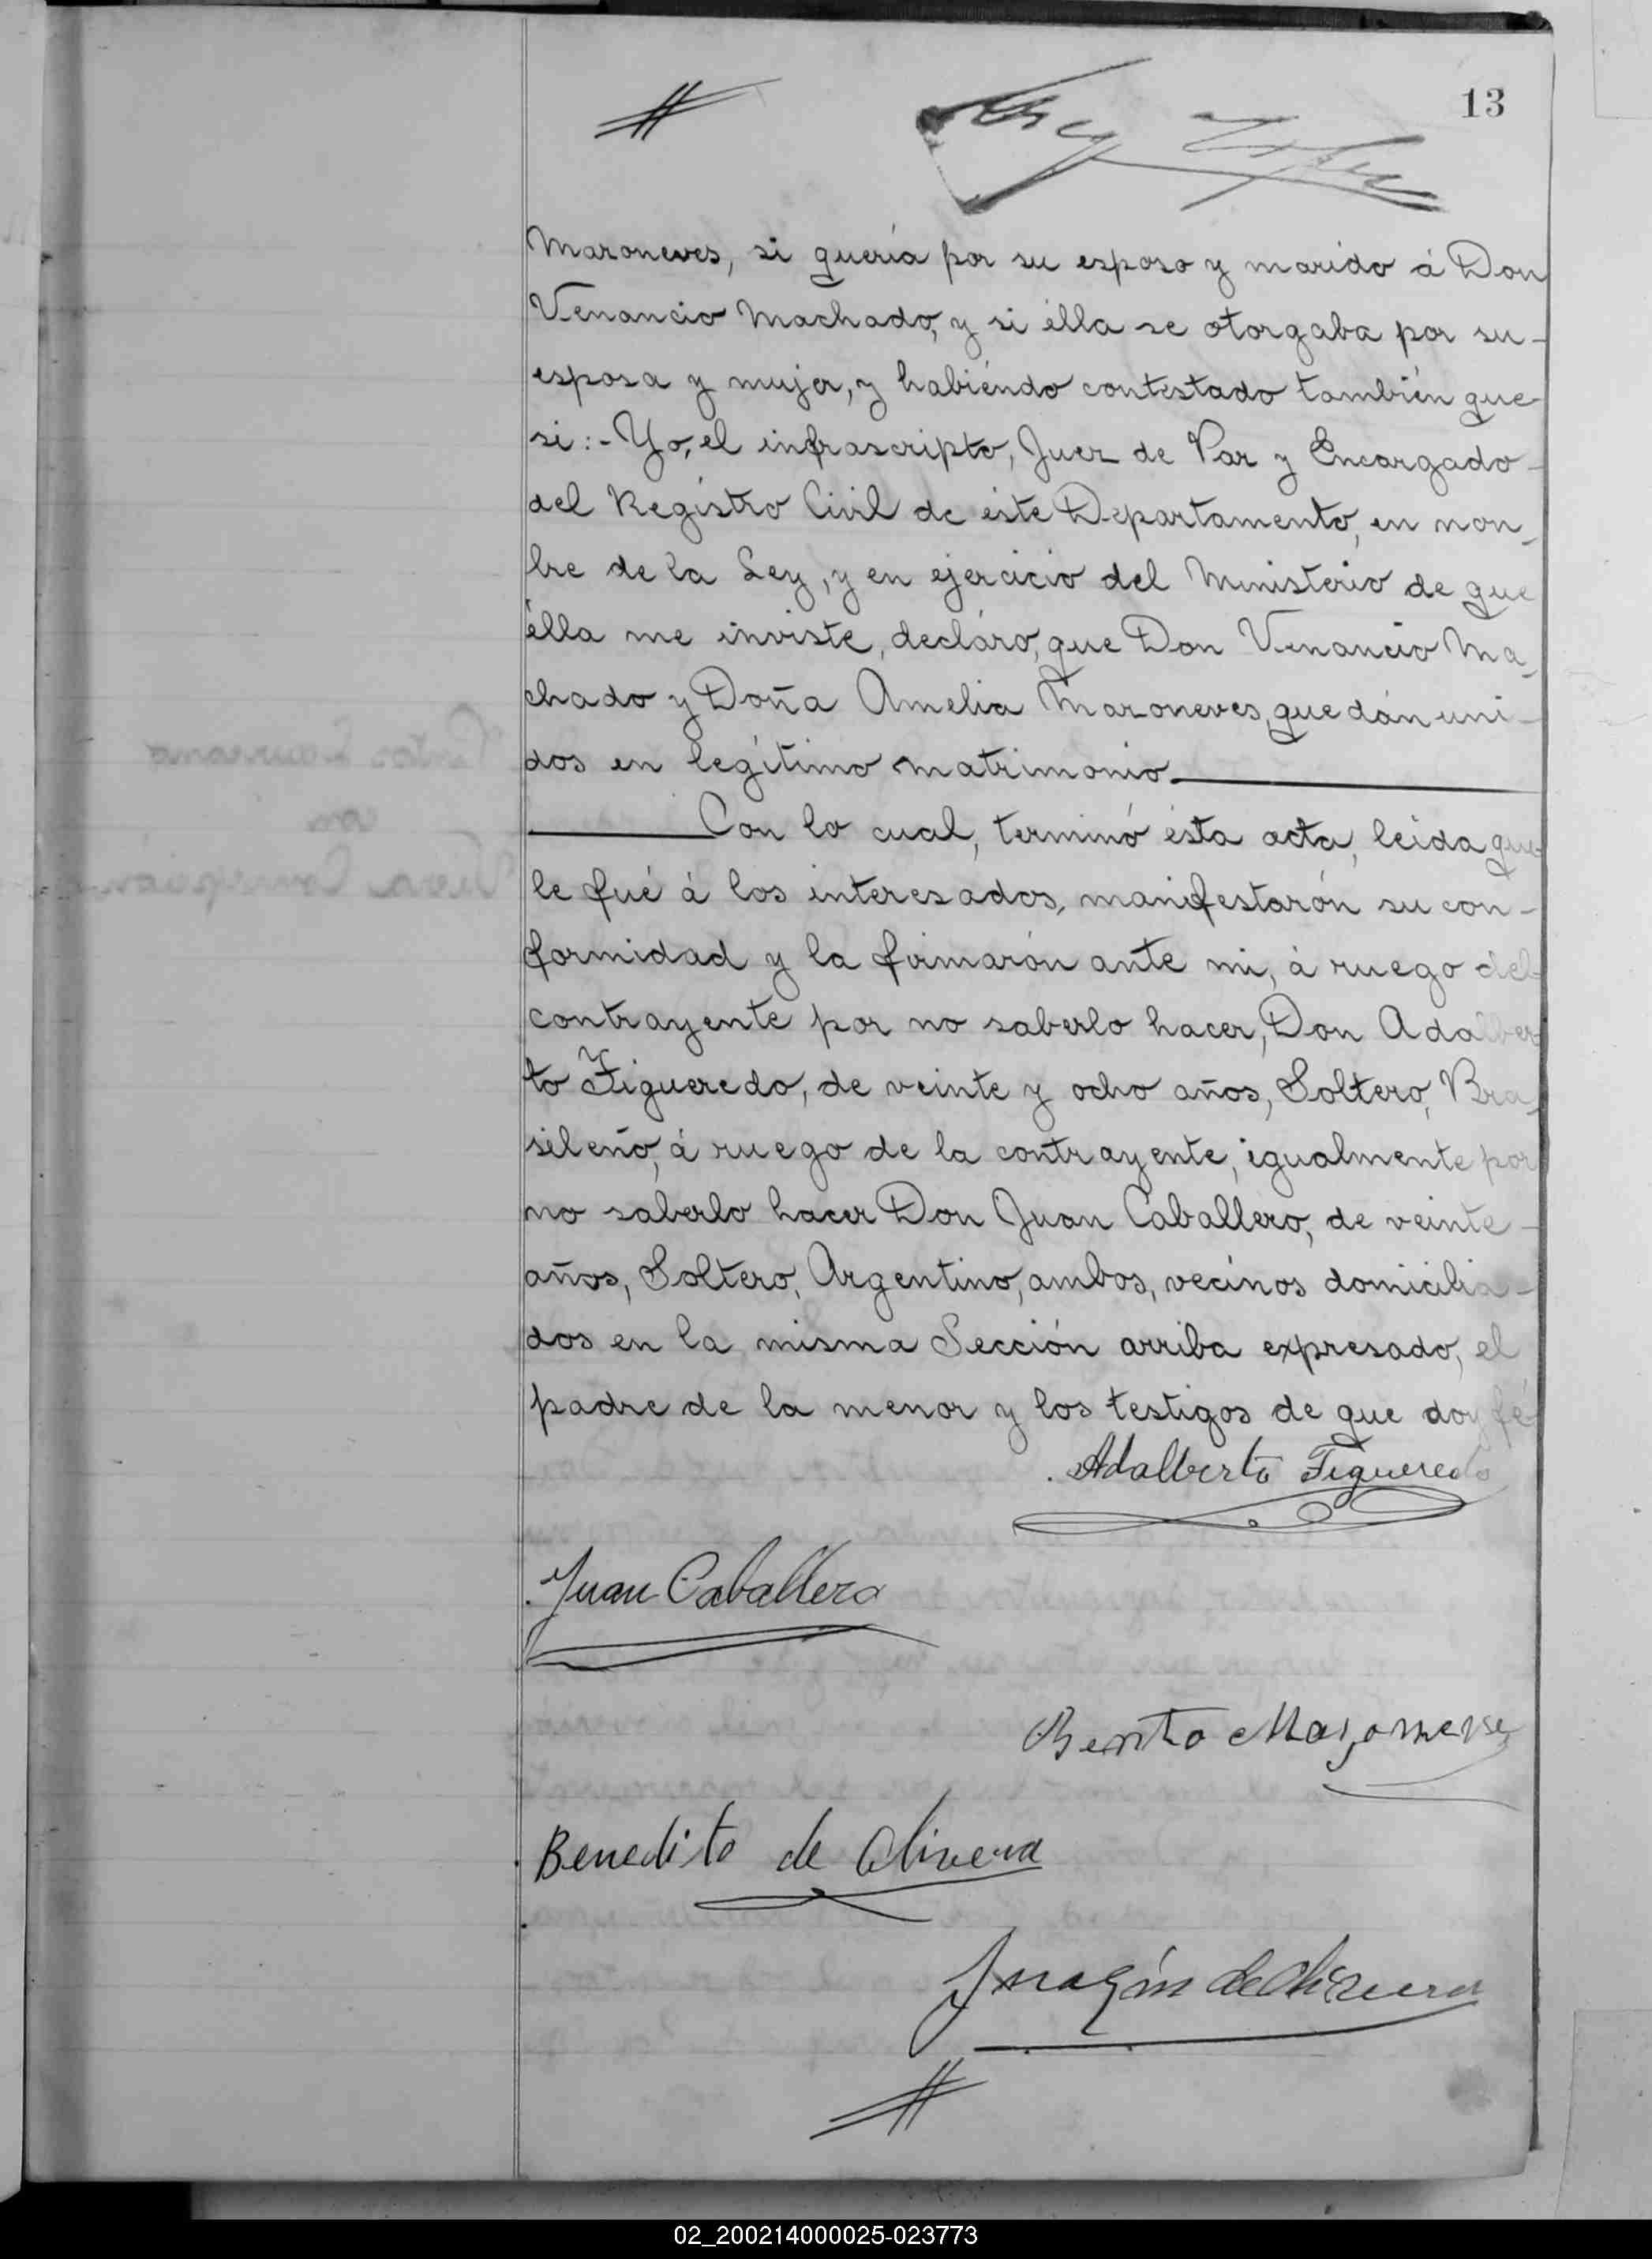 13
Maroneves, si quería por su esposo y marido á Don
Venancio Machado, y si élla se otorgaba por su-
esposa y mujer, y habiéndo contestado también que-
si:- Yo, el infrascripto, Juez de Paz y Encargado-
del Registro Civil de éste Departamento, en nom-
bre de la Ley, y en ejercicio del Ministerio de que
élla me inviste, decláro, que Don Venancio Ma-
chado y Doña Amelia Maroneves, quedán uni-
dos en legítimo matrimonio.
Con lo cual, terminó ésta acta, leída que
le fué á los interesados, manifestarón su con-
formidad y la firmarón ante mi, á ruego del
contrayente por no saberlo hacer, Don Adalber
to Figueredo, de veinte y ocho años, Soltero, Bra-
sileño, á ruego de la contrayente, igualmente por
no saberlo hacer Don Juan Caballero, de veinte-
años, Soltero, Argentino, ambos, vecinos domicilia-
dos en la misma Sección arriba expresado, el
padre de la menor y los testigos de que doy fé
Adalberto Figueredo
Juan Caballero
Bento
Benedito de Olivera
Joaquín de Olivera
02_200214000025-023773